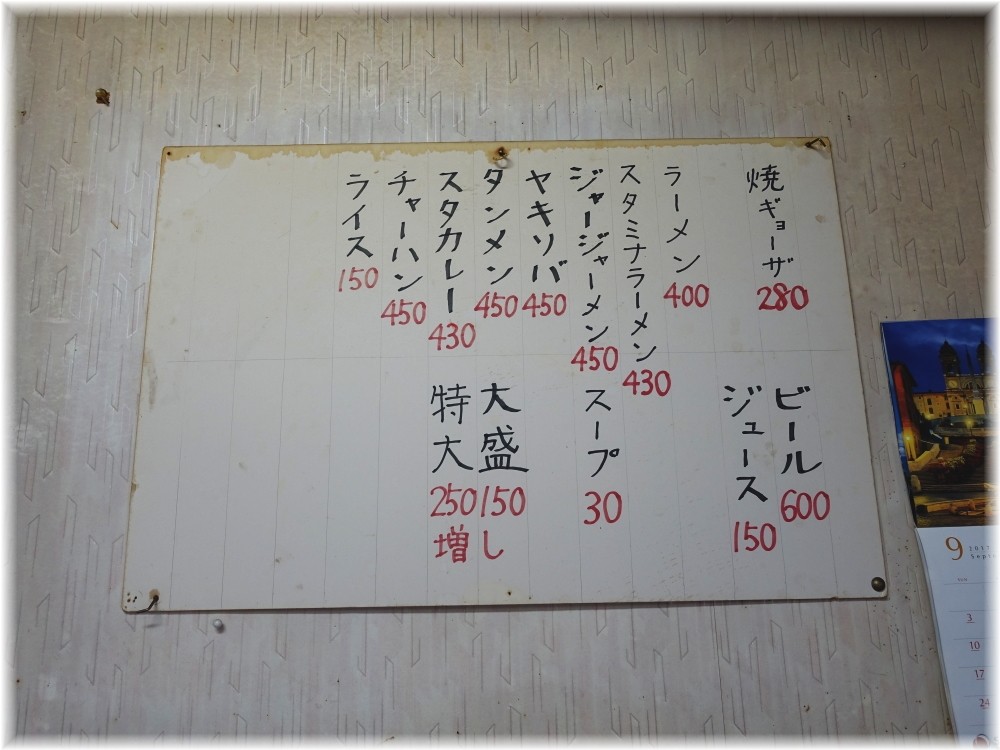 焼ギョーザ 280
ラーメン 400
スタミナラーメン 430
ジャージャーメン 450
ヤキソバ 450
タンメン 450
スタカレー 430
チャーハン 450
ライス 150
ビール 600
ジュース 150
スープ 30
大盛 150
特大 250
増し
9
3
10
17
24